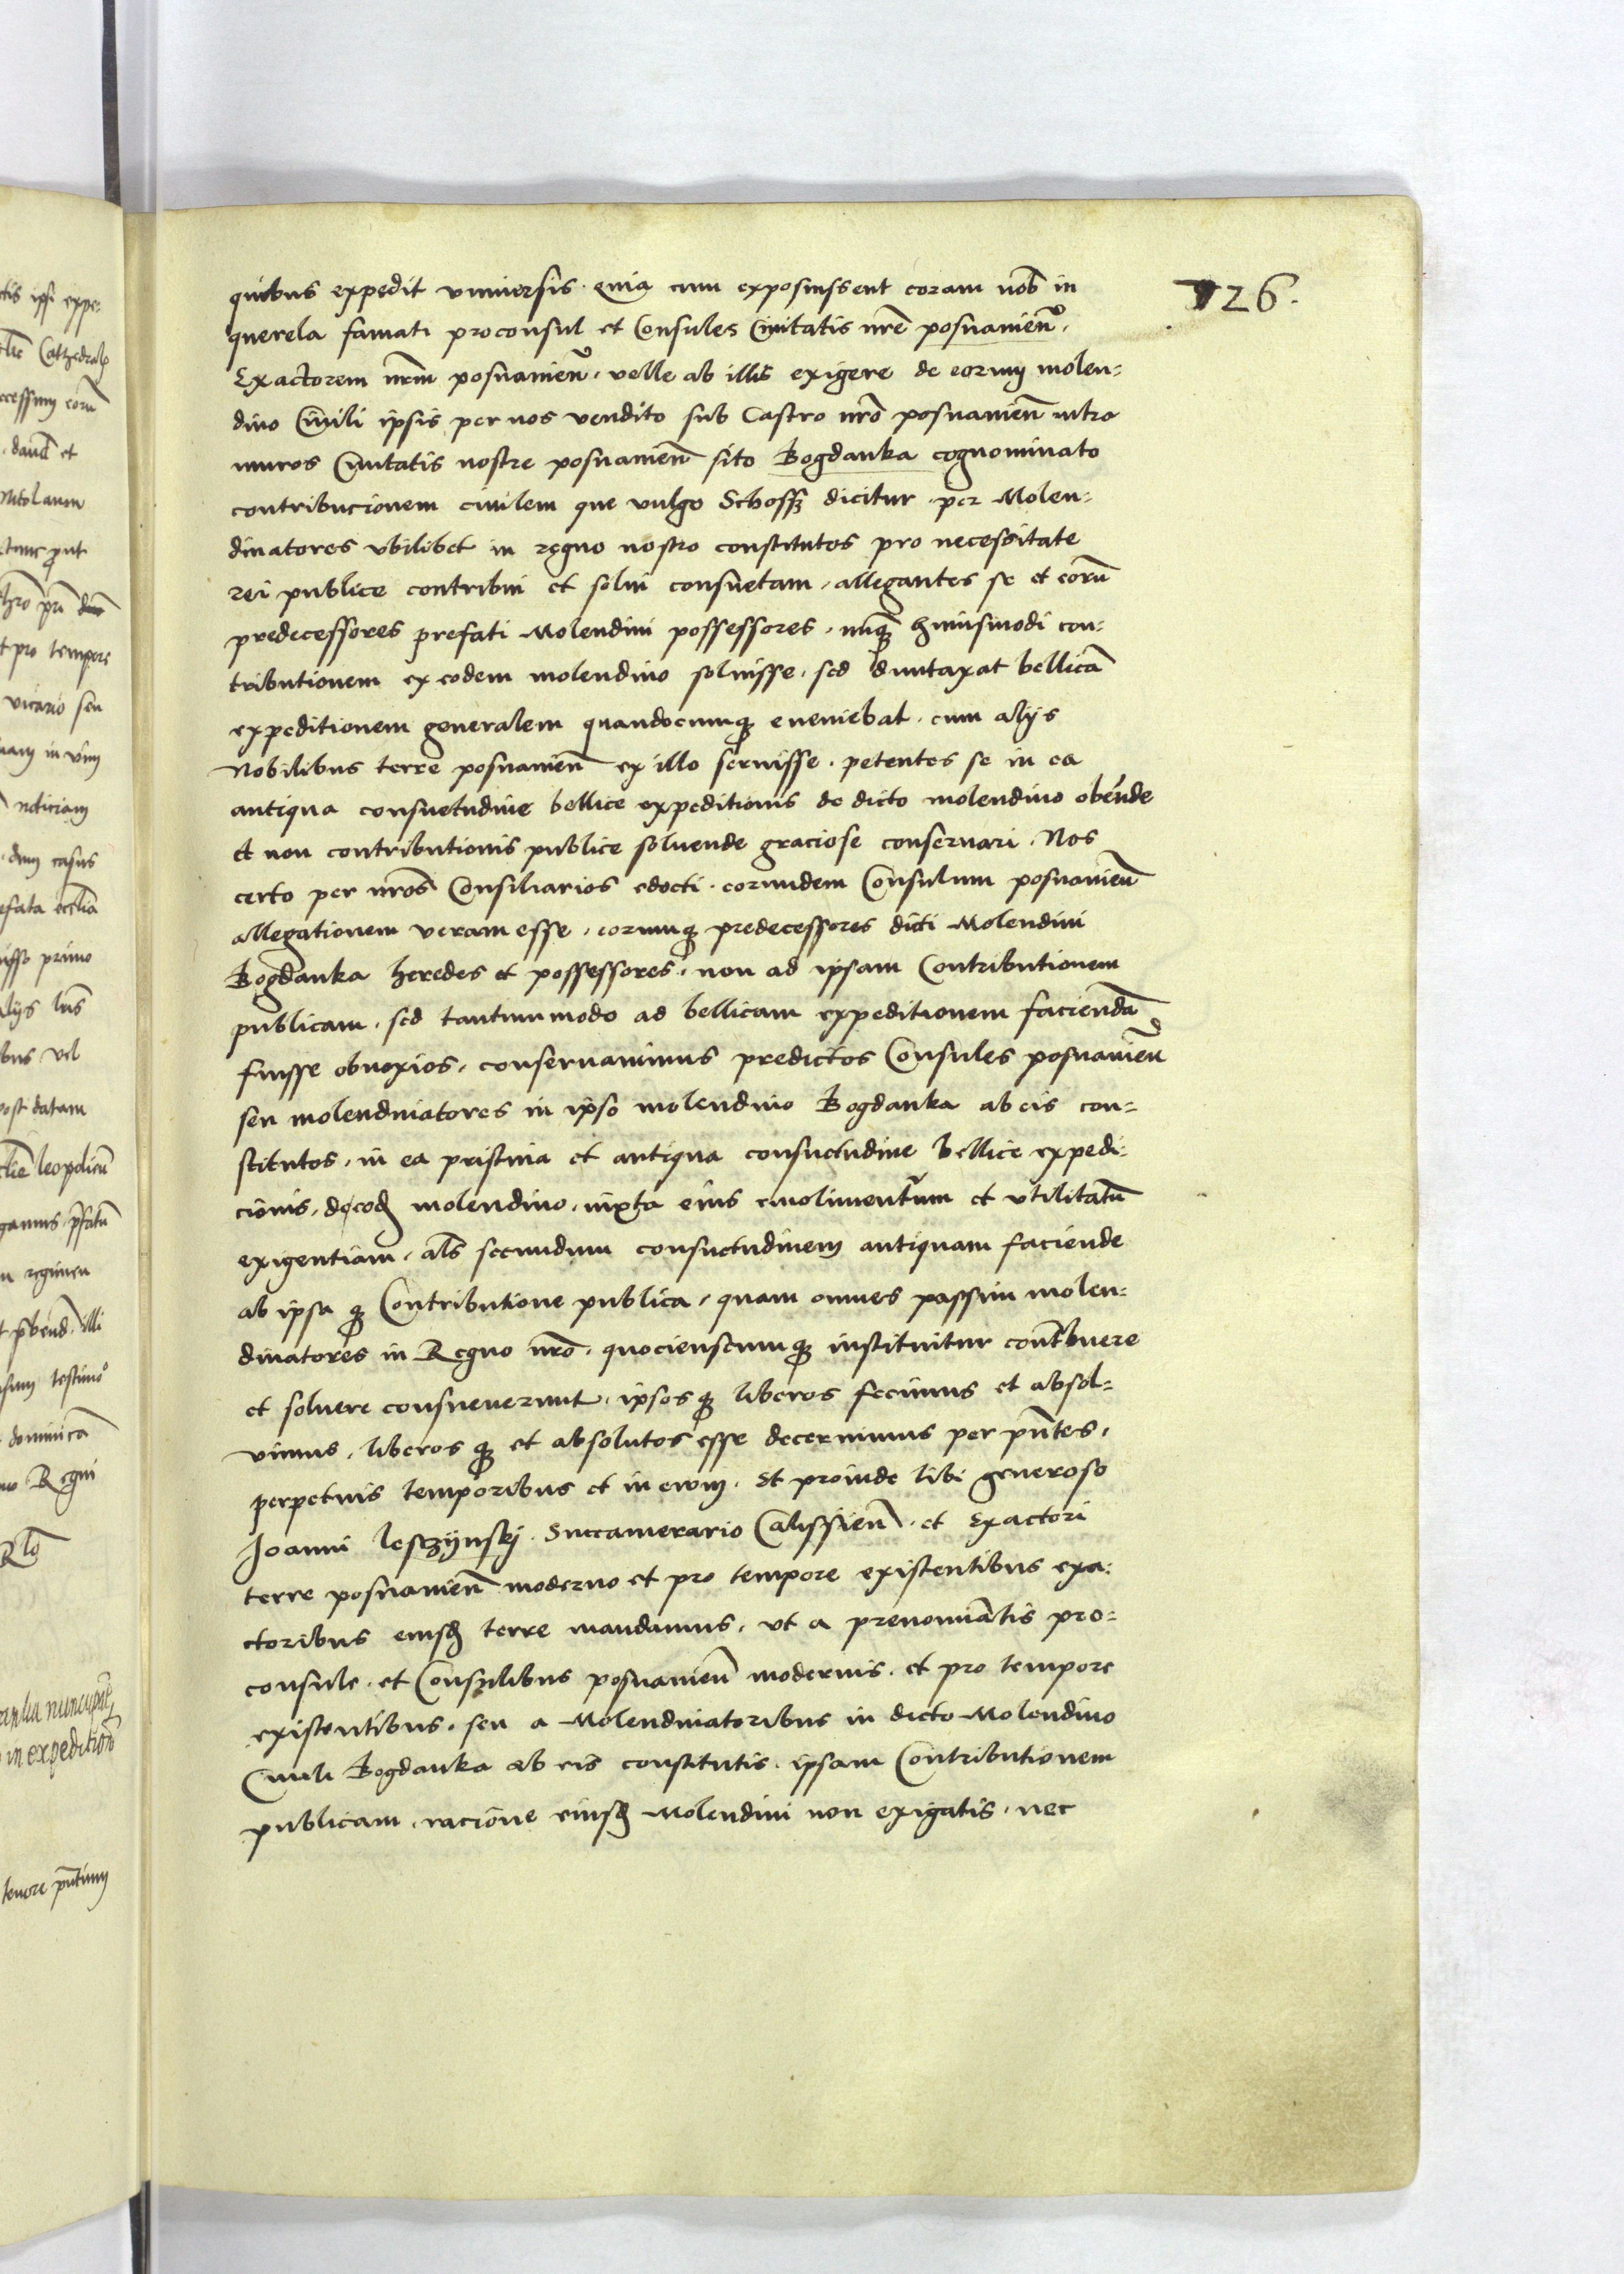 126.
quibus expedit universis. Quia cum exposuissent coram nob̄ in
querela famati proconsul et Consules Civitatis nr̄e posnanien̄.
Exactorem nr̄m posnanien̄, velle ab illis exigere de eorum molen=
dino Civili ipsis per nos vendito sub Castro nr̄o posnanien̄ intra
muros Civitatis nostre posnanien̄ sito Bogdanka cognominato
contribucionem civilem que vulgo Schoss dicitur per Molen=
dinatores ubilibet in regno nostro constitutos pro necessitate
rei publice contribui et solvi consuetam, allegantes se et eorū
predecessores prefati Molendini possessores, nunq̄ huiusmodi con=
tributionem ex eodem molendino solvisse, sed duntaxat bellicā
expeditionem generalem quandocumq; eveniebat, cum alijs
Nobilibus terre posnanien̄ ex illo servisse. petentes se in ea
antiqua consuetudine bellice expeditionis de dicto molendino obeunde
et non contributionis publice solvende graciose conservari. Nos
certo per nr̄os Consiliarios edocti, eorundem Consulum posnanien̄
allegationem veram esse, eorumq; predecessores dicti Molendini
Bogdanka heredes et possessores, non ad ipsam Contributionem
publicam, sed tantummodo ad bellicam expeditionem faciendā
fuisse obnoxios, conservavimus predictos Consules posnanien̄
seu molendinatores in ipso molendino Bogdanka ab eis con=
stitutos, in ea pristina et antiqua consuetudine bellice expedi=
cionis, de eod̄ molendino, iuxta eius emolimentum et utilitatum
exigentiam, al̄s secundum consuetudinem antiquam faciende
ab ipsa q; Contributione publica, quam omnes passim molen=
dinatores in Regno nr̄o, quocienscumq; instituitur cont̄buere
et solvere consueverunt, ipsos q; liberos fecimus et absol=
vimus, liberos q; et absolutos esse decernimus per pn̄tes,
perpetuis temporibus et in evum. Et proinde tibi generoso
Joanni lesczynskj Succamerario Calissien̄, et Exactori
terre posnanien̄ moderno et pro tempore existentibus exa=
ctoribus eiusd̄ terre mandamus, ut a prenomīatis pro=
consule et Consulibus posnanien̄ modernis, et pro tempore
existentibus, seu a Molendinatoribus in dicto Molendino
Civili Bogdanka ab eis constitutis, ipsam Contributionem
publicam, racione eiusd̄ Molendini non exigatis, nec